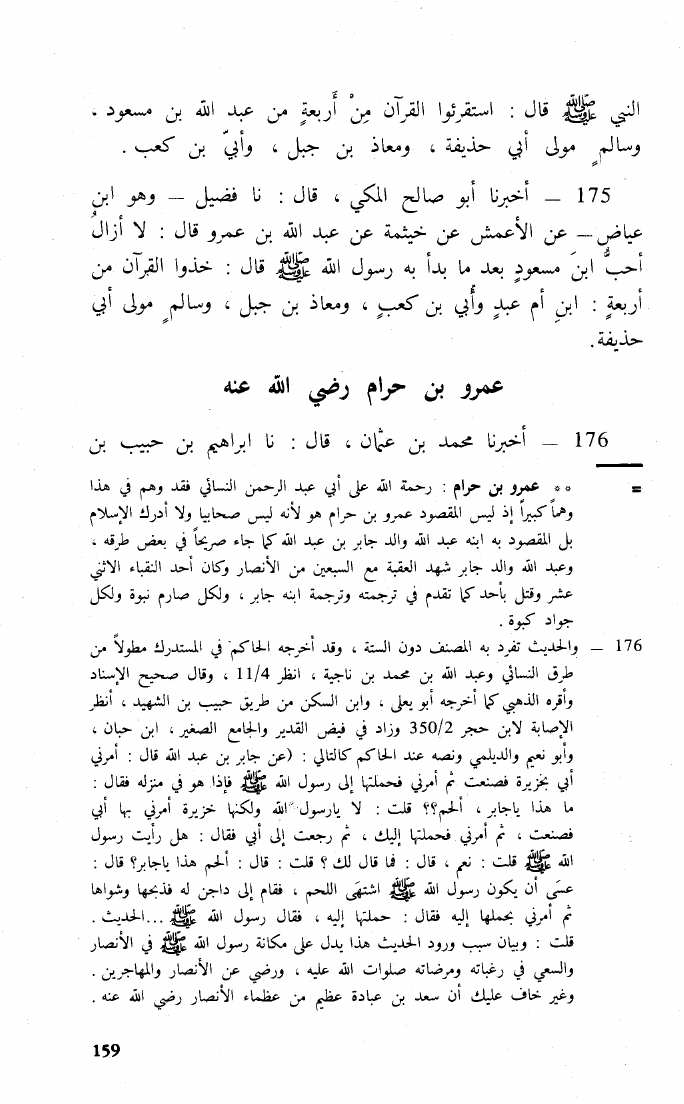 النبي ﷺ قال : استقرئوا القرآن مِنْ أَربعةٍ من عبد الله بن مسعود ،
وسالمٍ مولى أبي حذيفة ، ومعاذ بن جبل ، وأبيّ بن كعب .
175 — أخبرنا أبو صالح المكي ، قال : نا فضيل — وهو ابن
عياض — عن الأعمش عن خيثمة عن عبد الله بن عمرو قال : لا أزالُ
أحبُّ ابنَ مسعودٍ بعد ما بدأ به رسول الله ﷺ قال : خذوا القرآن من
أربعةٍ : ابنِ أم عبدٍ وأُبي بن كعبٍ ، ومعاذ بن جبل ، وسالمٍ مولى أبي
حذيفة .
عمرو بن حرام رضي الله عنه
176 — أخبرنا محمد بن عثمان ، قال : نا ابراهيم بن حبيب بن
= ** عمرو بن حرام : رحمة الله على أبي عبد الرحمن النسائي فقد وهم في هذا
وهماً كبيراً إذ ليس المقصود عمرو بن حرام هو لأنه ليس صحابيا ولا أدرك الإسلام
بل المقصود به ابنه عبد الله والد جابر بن عبد الله كما جاء صريحاً في بعض طرقه ،
وعبد الله والد جابر شهد العقبة مع السبعين من الأنصار وكان أحد النقباء الاثني
عشر وقتل بأحد كما تقدم في ترجمته وترجمة ابنه جابر ، ولكل صارم نبوة ولكل
جواد كبوة .
176 — والحديث تفرد به المصنف دون الستة ، وقد أخرجه الحاكم في المستدرك مطولاً من
طرق النسائي وعبد الله بن محمد بن ناجية ، انظر 11/4 ، وقال صحيح الإسناد
وأقره الذهبي كما أخرجه أبو يعلى ، وابن السكن من طريق حبيب بن الشهيد ، أنظر
الإصابة لابن حجر 350/2 وزاد في فيض القدير والجامع الصغير ، ابن حبان ،
وأبو نعيم والديلمي ونصه عند الحاكم كالتالي : (عن جابر بن عبد الله قال : أمرني
أبي بخزيرة فصنعت ثم أمرني فحملتها إلى رسول الله ﷺ فإذا هو في منزله فقال :
ما هذا ياجابر ، ألحم؟؟ قلت : لا يارسول الله ولكنها خزيرة أمرني بها أبي
فصنعت ، ثم أمرني فحملتها إليك ، ثم رجعت إلى أبي فقال : هل رأيت رسول
الله ﷺ قلت : نعم ، قال : فما قال لك ؟ قلت : قال : ألحم هذا ياجابر؟ قال :
عسى أن يكون رسول الله ﷺ اشتهى اللحم ، فقام إلى داجن له فذبحها وشواها
ثم أمرني بحملها إليه فقال : حملتها إليه ، فقال رسول الله ﷺ ...الحديث .
قلت : وبيان سبب ورود الحديث هذا يدل على مكانة رسول الله ﷺ في الأنصار
والسعي في رغباته ومرضاته صلوات الله عليه ، ورضي عن الأنصار والمهاجرين .
وغير خاف عليك أن سعد بن عبادة عظيم من عظماء الأنصار رضي الله عنه .
159